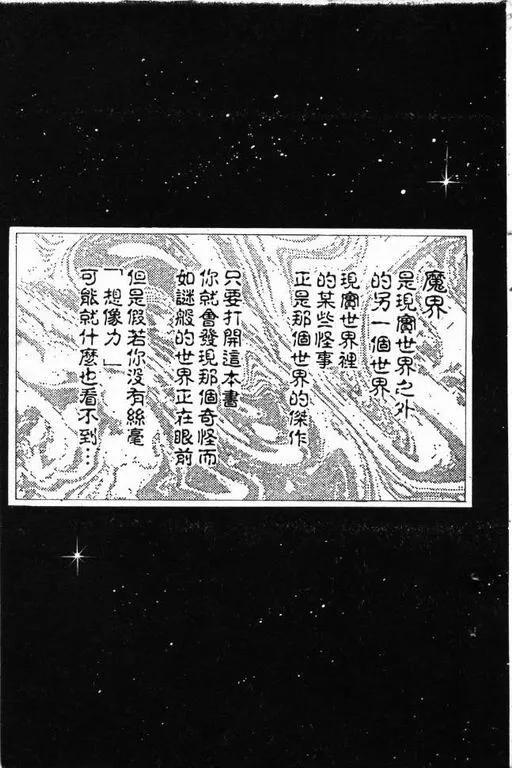 魔界
是現實世界之外
的另一個世界
現實世界裡
的某些怪事
正是那個世界的傑作
只要打開這本書
你就會發現那個奇怪而
如謎般的世界正在眼前
但是假若你沒有絲毫
「想像力」
可能就什麼也看不到…